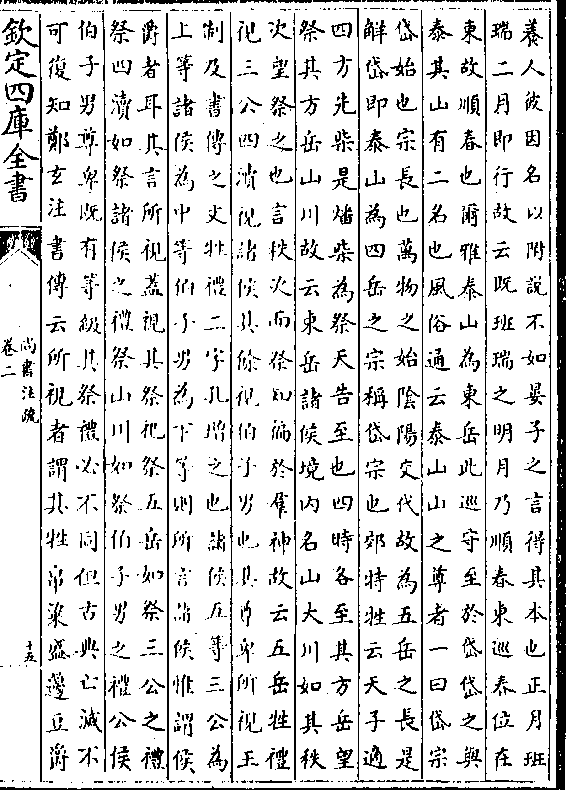 養人彼因名以附說不如晏子之言得其本也正月班
瑞二月即行故云既班瑞之明月乃順春東巡春位在
東故順春也爾雅泰山為東岳此巡守至於岱岱之與
泰其山有二名也風俗通云泰山山之尊者一曰岱宗
岱始也宗長也萬物之始陰陽交代故為五岳之長是
解岱即泰山為四岳之宗稱岱宗也郊特牲云天子適
四方先柴是燔柴為祭天告至也四時各至其方岳望
祭其方岳山川故云東岳諸侯境內名山大川如其秩
次望祭之也言秩次而祭知徧於羣神故云五岳牲禮
視三公四瀆視諸侯其餘視伯子男也其尊卑所視王
制及書傳之文牲禮二字孔增之也諸侯五等三公為
上等諸侯為中等伯子男為下等則所言諸侯惟謂侯
爵者耳其言所視蓋視其祭祀祭五岳如祭三公之禮
祭四瀆如祭諸侯之禮祭山川如祭伯子男之禮公侯
伯子男尊卑既有等級其祭禮必不同但古典亡滅不
可復知鄭玄注書傳云所視者謂其牲帛粢盛籩豆爵
欽定四庫全書
尚書注疏
卷二
十五